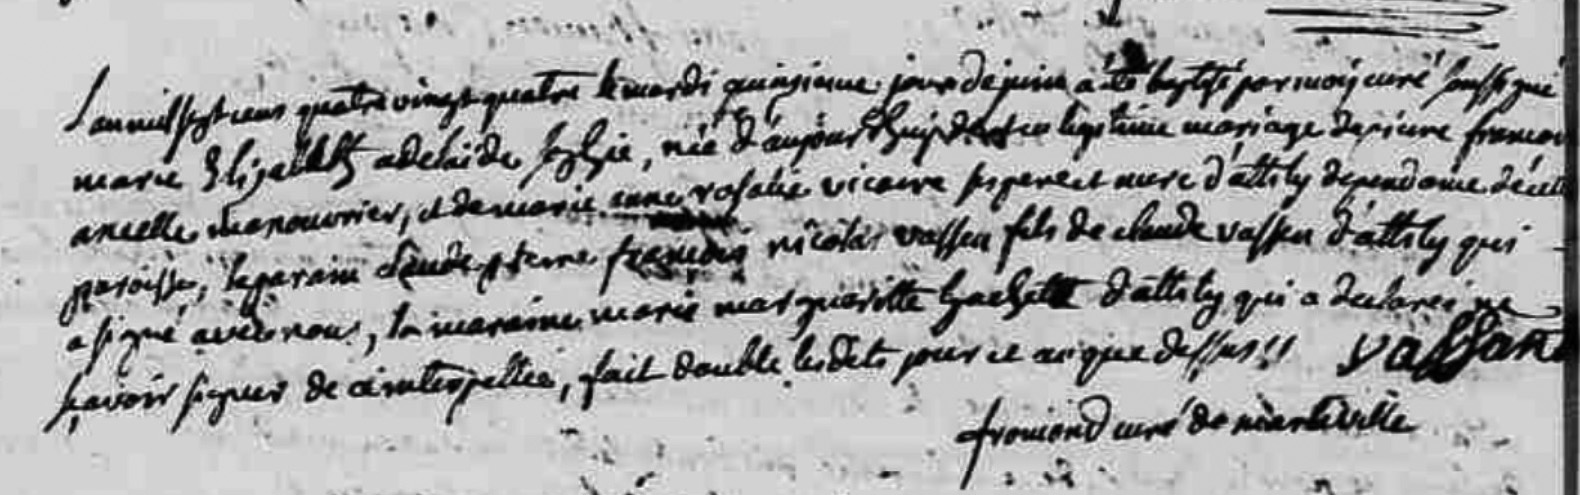 L'an mil sept cens quatre vingt quatre le mardi quinzieme jour de juin a été baptisé par moy curé soussigné
marie Elizabeth adelaide sophie, née d'aujourd'huy en legitime mariage de pierre francois
ancelle manouvrier, et de marie anne rosalie vicaire ses pere et mere d'attily dependance de cette
paroisse, le parain claude pierre françois nicolas vassen fils de claude vassen d'attily qui
a signé avec nous, la maraine marie margueritte d'attily qui a declaréz ne
sçavoir signer de ce interpellée, fait double lesdits jour et an que dessus !! vassant
fromond curé de marteville